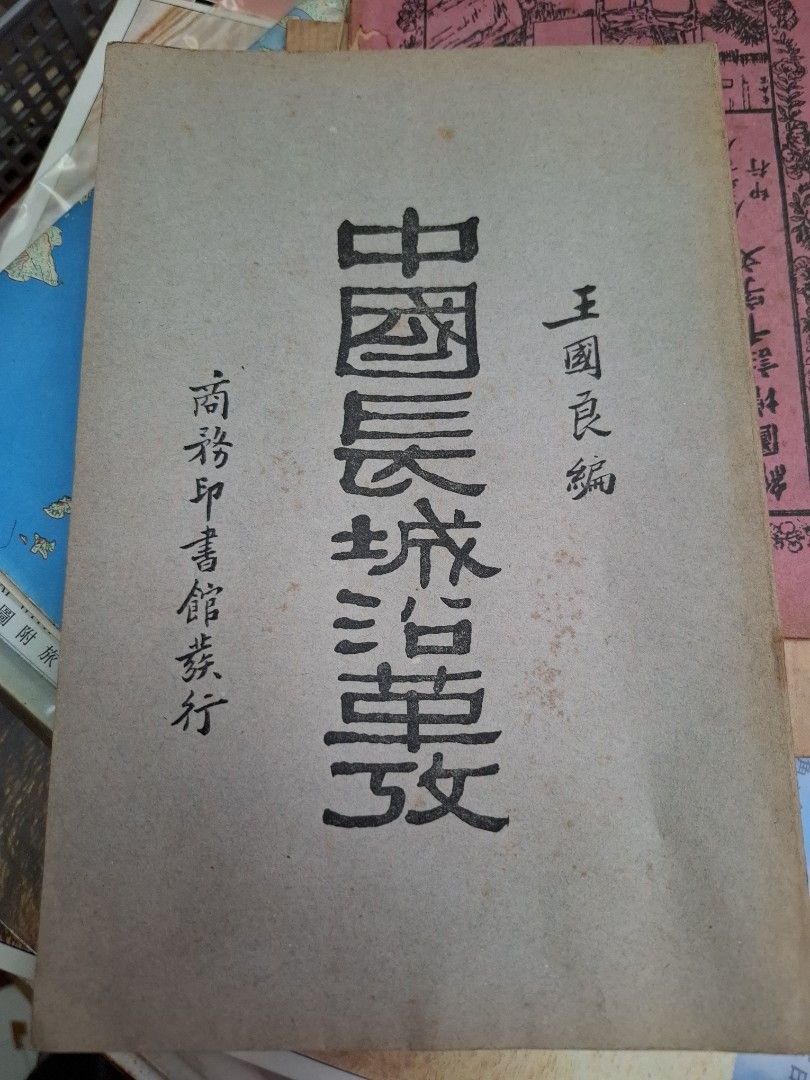 王國良編
中國長城沿革攷
商務印書館發行
附圖
旅
印行